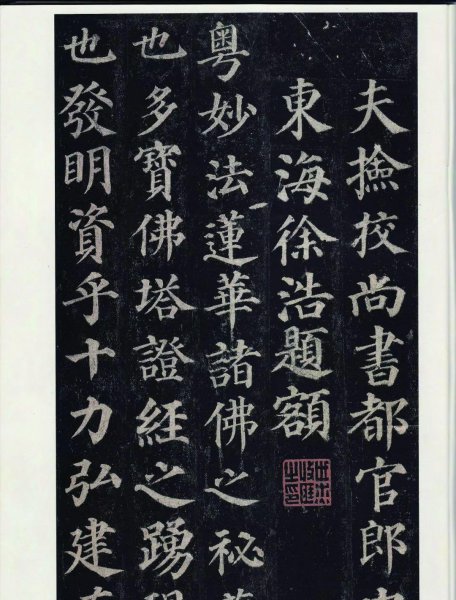 夫撿挍尚書都官郎
東海徐浩題額
粤妙法蓮華諸佛之秘
也多寶佛塔證經之踴
也發明資乎十力弘建